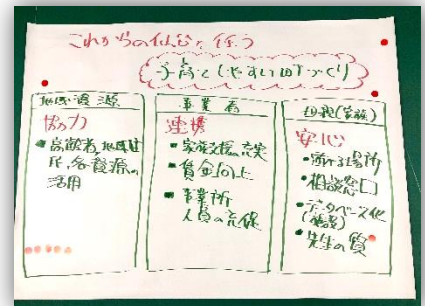 これからの仙台を担う
子育てしやすい町づくり
地域資源
協力
・高齢者、地域住
民、各資源の
活用
事業者
連携
・家族支援の充実
・賃金向上
・事業所
人員の充足
母親(家族)
安心
・預ける場所
・相談窓口
・データベース化
(施設)
・先生の質